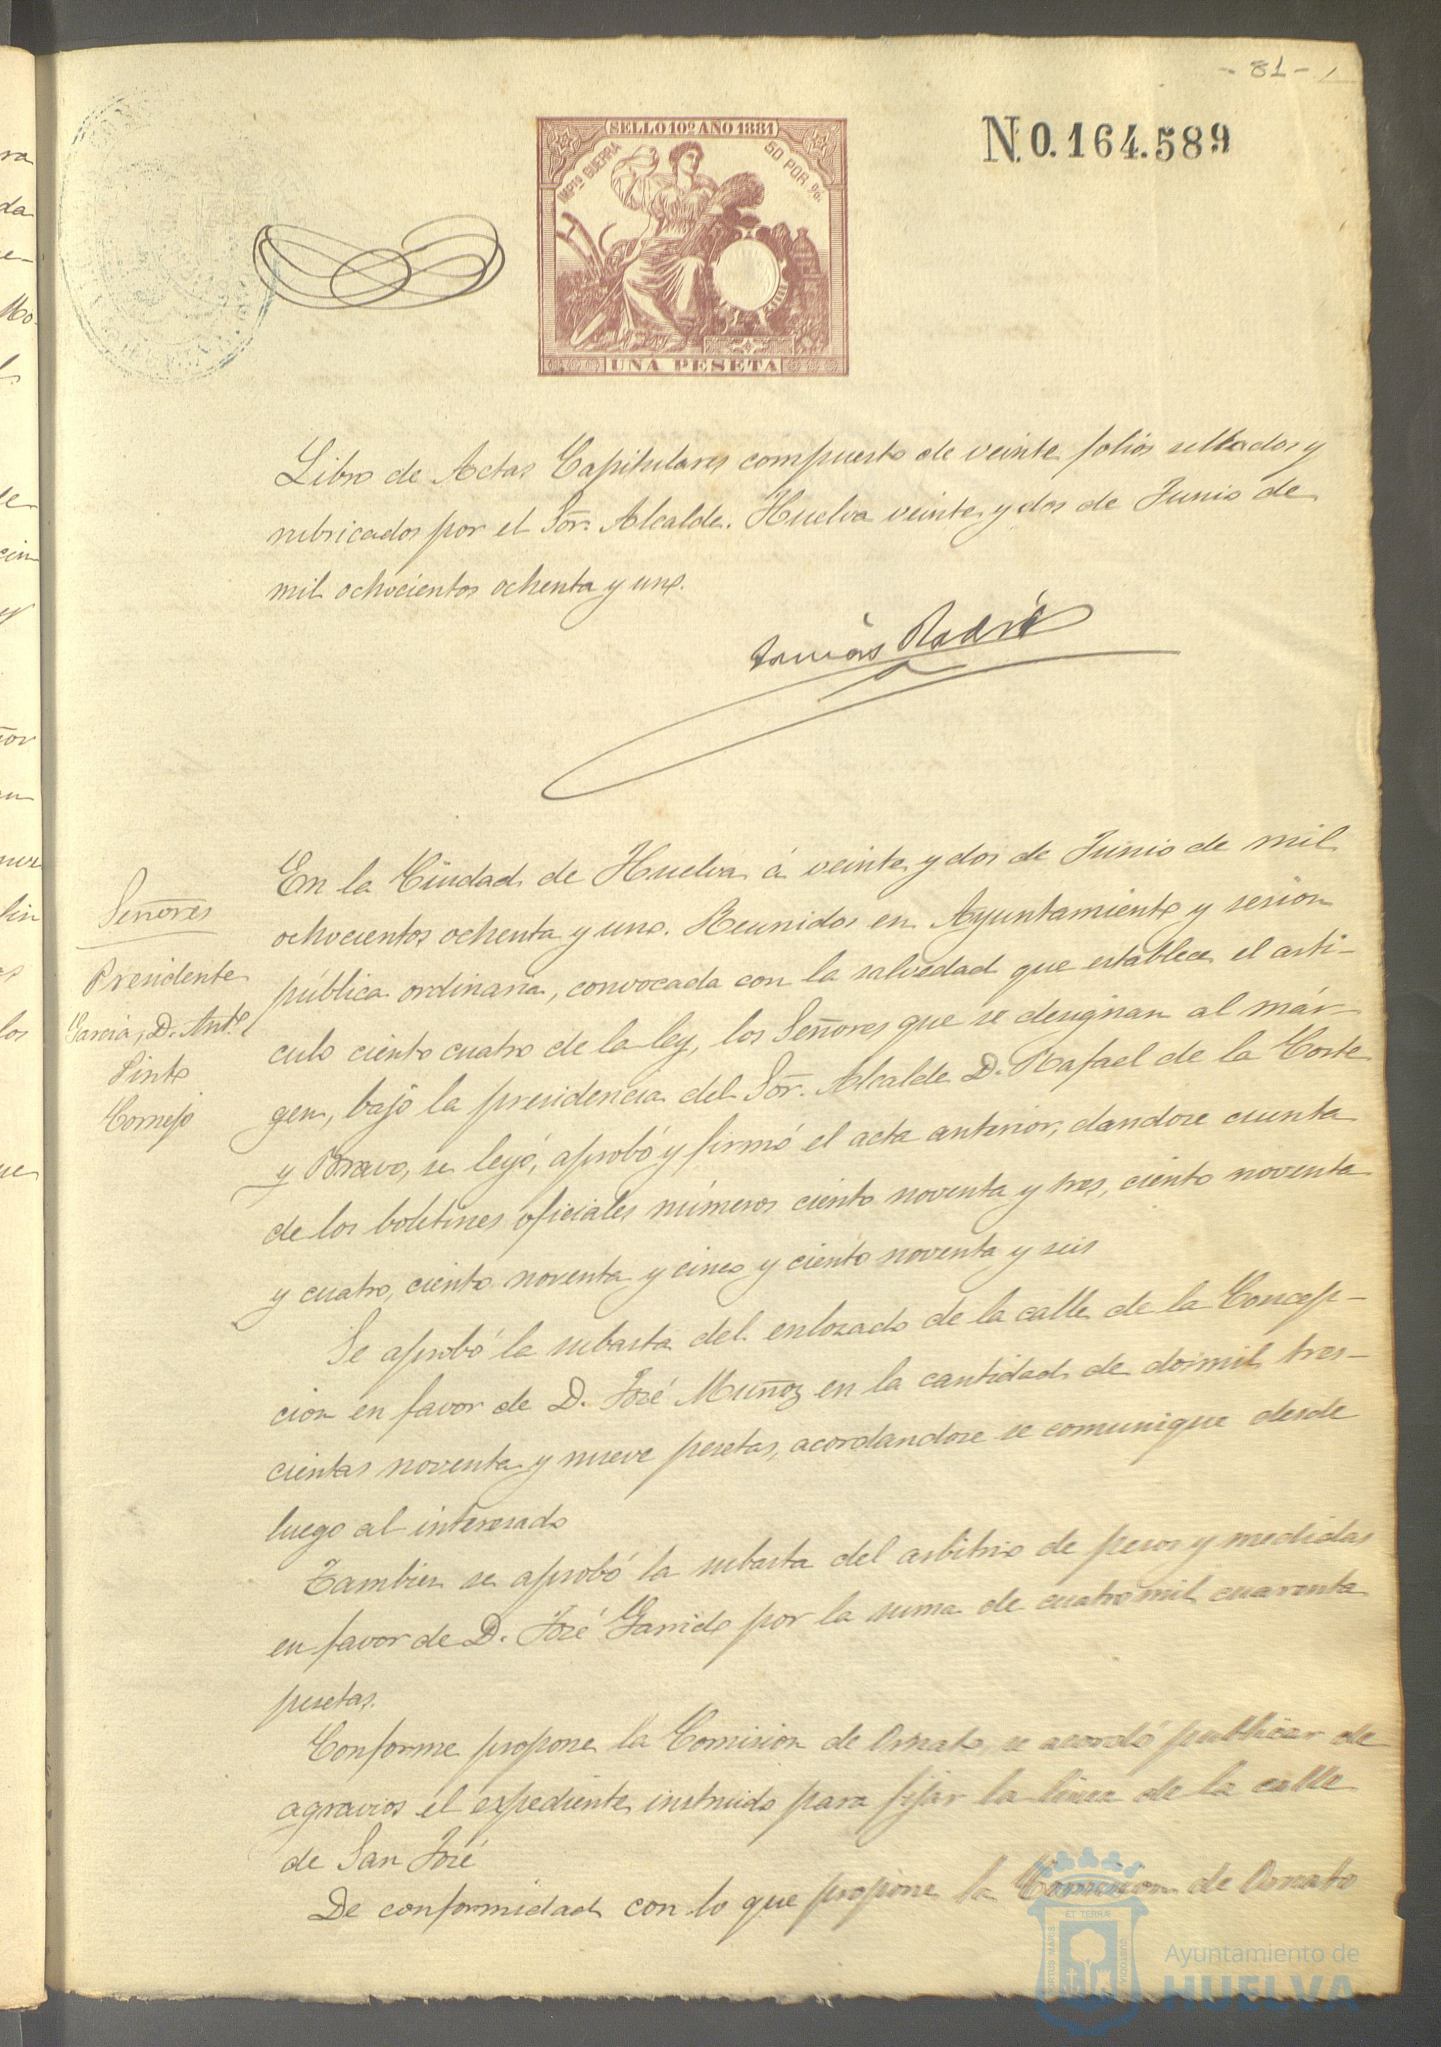 - 81 -
SELLO 10º AÑO 1881
IMPtº GUERRA
50 POR %.
UNA PESETA
N.0.164.589
Libro de Actas Capitulares compuesto de veinte folios sellados y
rubricados por el Sor. Alcalde. Huelva veinte y dos de Junio de
mil ochocientos ochenta y uno.
Tomás
Señores
Presidente
Garcia, D. Antº
Pinto
Cornejo
En la Ciudad de Huelva á veinte y dos de Junio de mil
ochocientos ochenta y uno. Reunidos en Ayuntamiento y sesion
pública ordinaria, convocada con la salvedad que establece el arti-
culo ciento cuatro de la ley, los Señores que se designan al már-
gen, bajo la presidencia del Sor. Alcalde D. Rafael de la Corte
y Bravo, se leyó, aprobó y firmó el acta anterior, dandose cuenta
de los boletines oficiales números ciento noventa y tres, ciento noventa
y cuatro, ciento noventa y cinco y ciento noventa y seis
Se aprobó la subasta del enlozado de la calle de la Concep-
cion en favor de D. José Muñoz en la cantidad de dosmil tres-
cientas noventa y nueve pesetas, acordandose se comunique desde
luego al interesado
Tambien se aprobó la subasta del arbitrio de pesos y medidas
en favor de D. José Garrido por la suma de cuatro mil cuarenta
pesetas.
Conforme propone la Comision de Ornato, se acordó publicar de
agravios el expediente instruido para fijar la linea de la calle
de San José
De conformidad con lo que propone la Comision de Ornato
PORTUS MARIS
ET TERRÆ
CUSTODIA
Ayuntamiento de
HUELVA